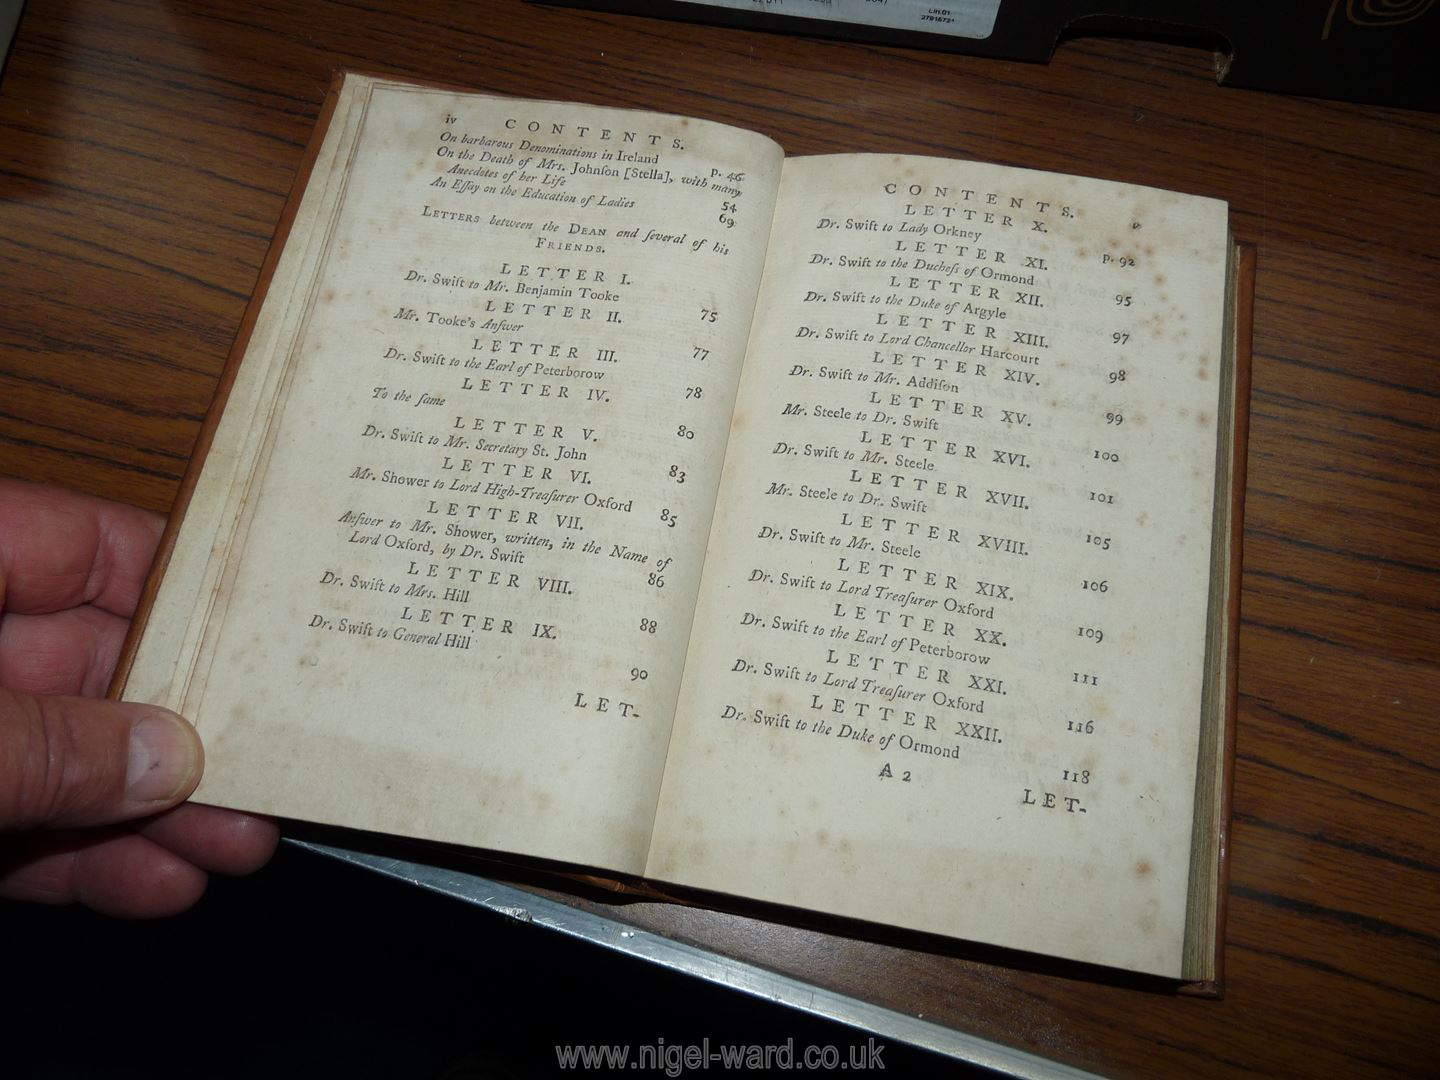 2781672
iv CONTENTS.
On barbarous Denominations in Ireland p. 46
On the Death of Mrs. Johnſon [Stella], with many
Anecdotes of her Life 54
An Eſſay on the Education of Ladies 69
LETTERS between the DEAN and ſeveral of his
FRIENDS.
LETTER I.
Dr. Swift to Mr. Benjamin Tooke 75
LETTER II.
Mr. Tooke's Anſwer 77
LETTER III.
Dr. Swift to the Earl of Peterborow 78
LETTER IV.
To the ſame 80
LETTER V.
Dr. Swift to Mr. Secretary St. John 83
LETTER VI.
Mr. Shower to Lord High-Treaſurer Oxford 85
LETTER VII.
Anſwer to Mr. Shower, written, in the Name of
Lord Oxford, by Dr. Swift 86
LETTER VIII.
Dr. Swift to Mrs. Hill 88
LETTER IX.
Dr. Swift to General Hill 90
LET-
CONTENTS. v
LETTER X.
Dr. Swift to Lady Orkney p. 92
LETTER XI.
Dr. Swift to the Ducheſs of Ormond 95
LETTER XII.
Dr. Swift to the Duke of Argyle 97
LETTER XIII.
Dr. Swift to Lord Chancellor Harcourt 98
LETTER XIV.
Dr. Swift to Mr. Addiſon 99
LETTER XV.
Mr. Steele to Dr. Swift 100
LETTER XVI.
Dr. Swift to Mr. Steele 101
LETTER XVII.
Mr. Steele to Dr. Swift 105
LETTER XVIII.
Dr. Swift to Mr. Steele 106
LETTER XIX.
Dr. Swift to Lord Treaſurer Oxford 109
LETTER XX.
Dr. Swift to the Earl of Peterborow 111
LETTER XXI.
Dr. Swift to Lord Treaſurer Oxford 116
LETTER XXII.
Dr. Swift to the Duke of Ormond 118
A 2
LET-
www.nigel-ward.co.uk